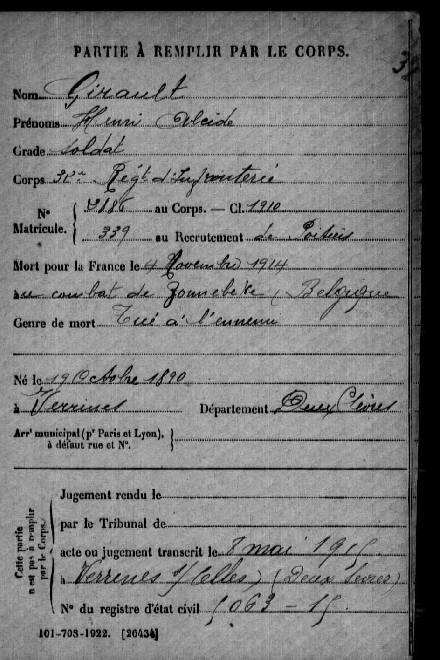 PARTIE À REMPLIR PAR LE CORPS.
Nom Girault
Prénoms Henri Alcide
Grade Soldat
Corps 32e Régt d'Infanterie
N° Matricule. { au Corps. — Cl. 1910
339 au Recrutement de Poitiers
Mort pour la France le 4 Novembre 1914
au combat de Zonnebeke (Belgique
Genre de mort Tué à l'ennemi
Né le 19 Octobre 1890
à Verrines Département Deux Sèvres
Arr' municipal (p' Paris et Lyon), à défaut rue et N°. }
Cette partie n'est pas à remplir par le Corps. {
Jugement rendu le
par le Tribunal de
acte ou jugement transcrit le 8 mai 1915
à Verrines s/Celles (Deux Sèvres)
N° du registre d'état civil 063 – 15
101-708-1922. [26434]